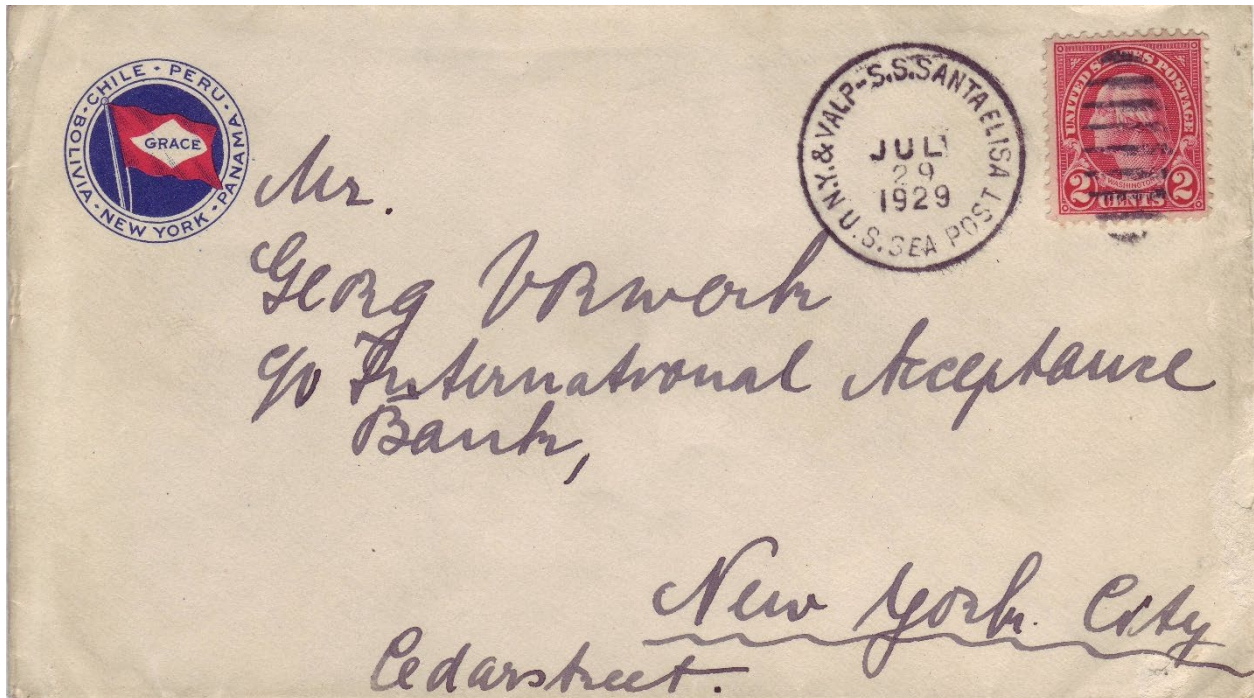 BOLIVIA · CHILE · PERU · PANAMA · NEW YORK ·
GRACE
N.Y. & VALP-S.S. SANTA ELISA
JUL
29
1929
U.S. SEA POST
UNITED STATES POSTAGE
WASHINGTON
2 CENTS 2
Mr.
Georg Vorwerk
c/o International Acceptance
Bank,
New York City
Cedarstreet.